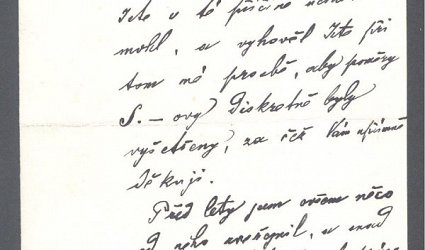 Jste v té příčině učin
mohl, a vyhověl Jste při
tom mé prosbě, aby poměry
S. – ovy diskrétně byly
vyšetřeny, za čež Vám upřímně
děkuji.
Před lety jsem ovšem něco
od něho uveřejnil, a snad